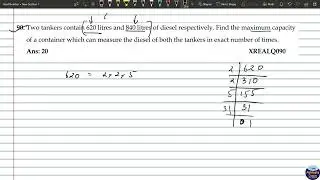 90. Two tankers contain 620 litres and 840 litres of diesel respectively. Find the maximum capacity
of a container which can measure the diesel of both the tankers in exact number of times.
Ans: 20 XREALQ090
620 = 2×2×5
2 620
2 310
5 155
31 31
1